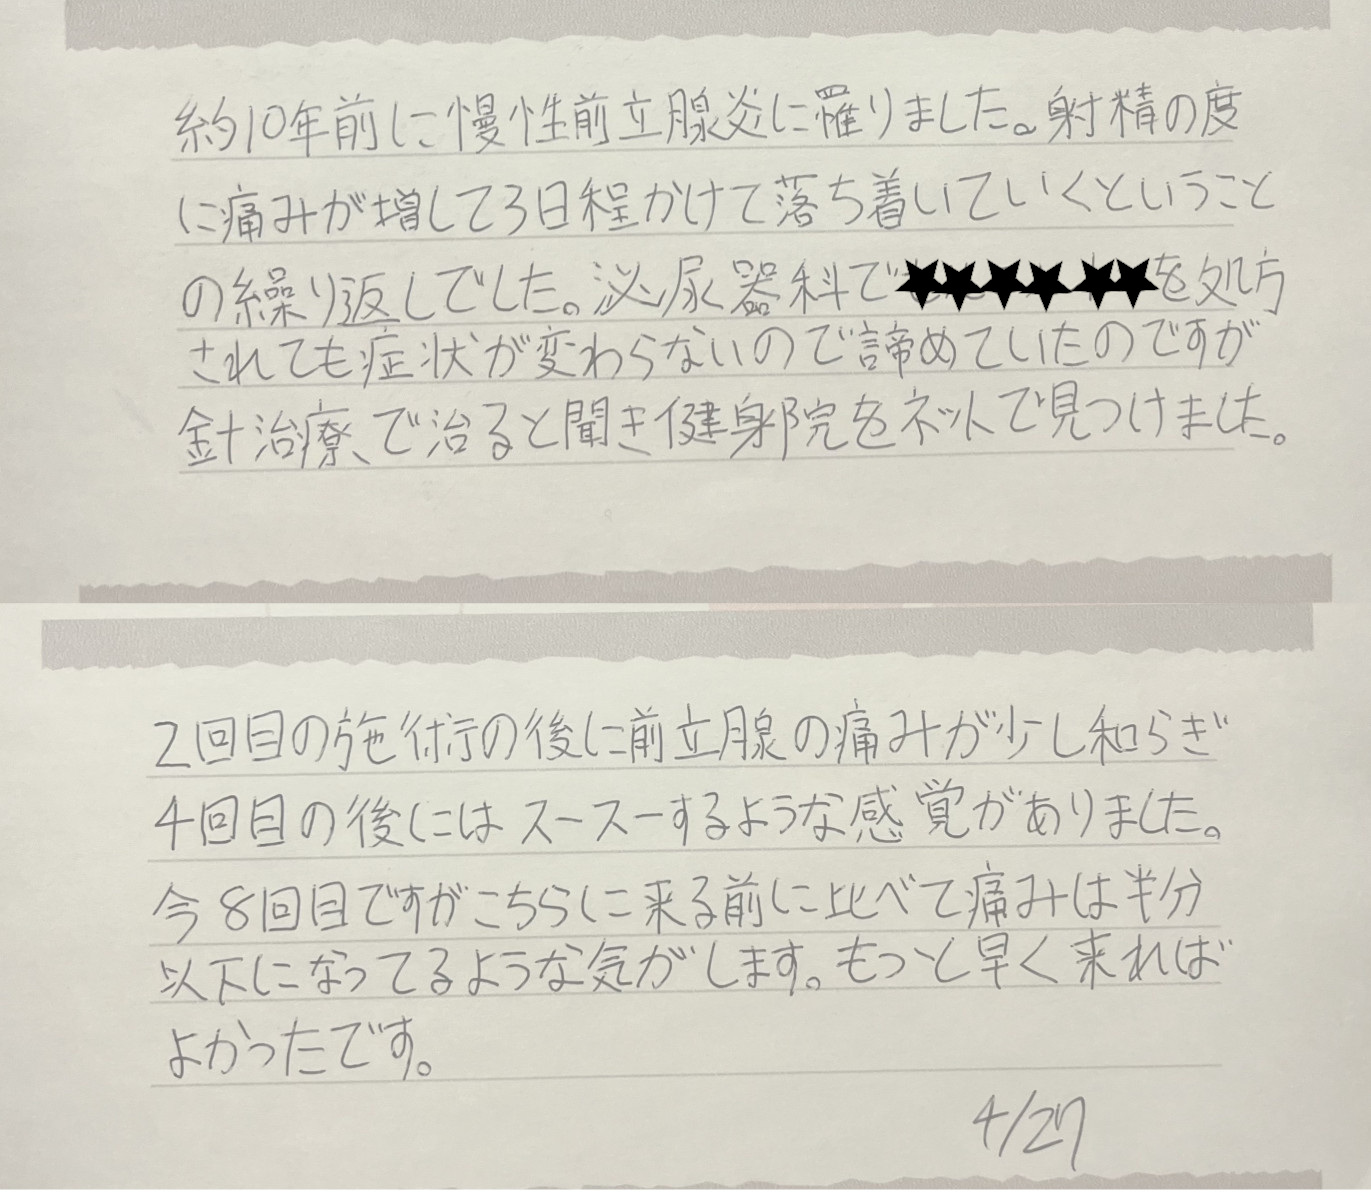 約10年前に慢性前立腺炎に罹りました。射精の度
に痛みが増して3日程かけて落ち着いていくということ
の繰り返しでした。泌尿器科で★★★★★★を処方
されても症状が変わらないので諦めていたのですが
針治療で治ると聞き健身院をネットで見つけました。
2回目の施術の後に前立腺の痛みが少し和らぎ
4回目の後にはスースーするような感覚がありました。
今8回目ですがこちらに来る前に比べて痛みは半分
以下になってるような気がします。もっと早く来れば
よかったです。
4/27